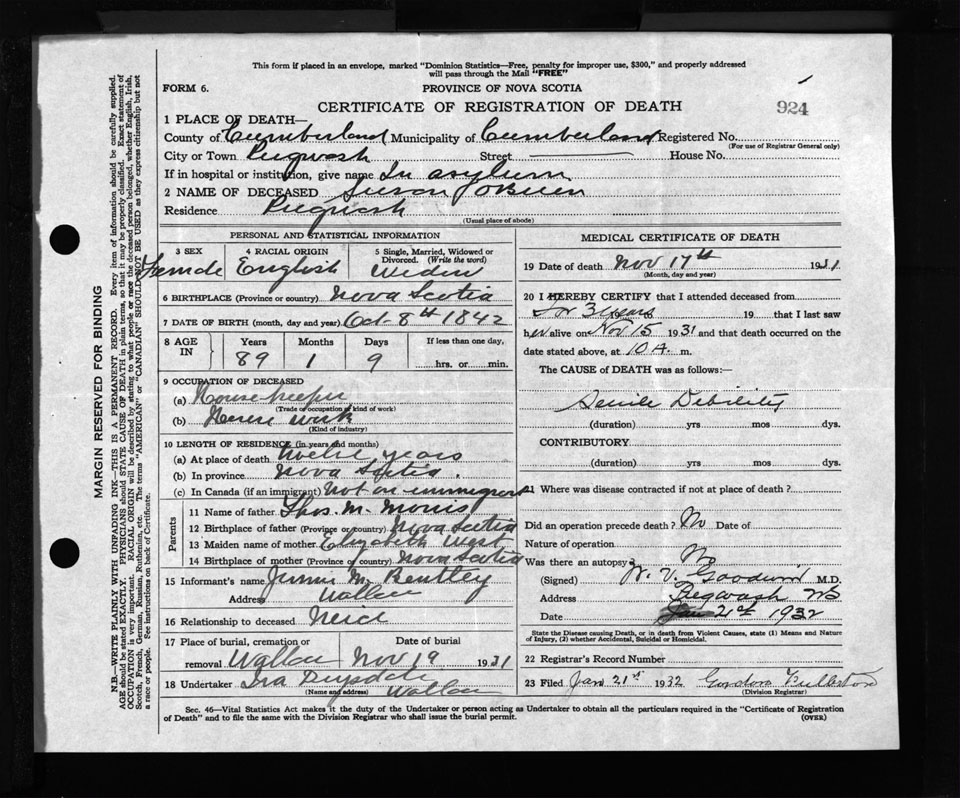 This form if placed in an envelope, marked "Dominion Statistics—Free, penalty for improper use, $300," and properly addressed
will pass through the Mail "FREE"
FORM 6.
PROVINCE OF NOVA SCOTIA
CERTIFICATE OF REGISTRATION OF DEATH
924
1 PLACE OF DEATH—
County of Cumberland Municipality of Cumberland Registered No.
(For use of Registrar General only)
City or Town Pugwash Street House No.
If in hospital or institution, give name In asylum
2 NAME OF DECEASED Susan J OBrien
Residence Pugwash
(Usual place of abode)
PERSONAL AND STATISTICAL INFORMATION
3 SEX
4 RACIAL ORIGIN
5 Single, Married, Widowed or
Divorced. (Write the word)
Female English Widow
6 BIRTHPLACE (Province or country) Nova Scotia
7 DATE OF BIRTH (month, day and year) Oct 8th 1842
8 AGE IN
Years Months Days If less than one day,
89 1 9 hrs. or min.
9 OCCUPATION OF DECEASED
(a) Housekeeper
(Trade or occupation or kind of work)
(b) House work
(Kind of industry)
10 LENGTH OF RESIDENCE (in years and months)
(a) At place of death twelve years
(b) In province Nova Scotia
(c) In Canada (if an immigrant) not an immigrant
Parents
11 Name of father Thos. M. Morris
12 Birthplace of father (Province or country) Nova Scotia
13 Maiden name of mother Elizabeth West
14 Birthplace of mother (Province or country) Nova Scotia
15 Informant's name Jennie M. Bentley
Address Wallace
16 Relationship to deceased Neice
17 Place of burial, cremation or
removal Wallace
Date of burial
Nov 19 1931
18 Undertaker Ira Drysdale
(Name and address) Wallace
MEDICAL CERTIFICATE OF DEATH
19 Date of death Nov 17th 1931
(Month, day and year)
20 I HEREBY CERTIFY that I attended deceased from
for 3 years 19 that I last saw
her alive on Nov 15 1931 and that death occurred on the
date stated above, at 10 A. m.
The CAUSE of DEATH was as follows:—
Senile Debility
(duration) yrs mos dys.
CONTRIBUTORY
(duration) yrs mos dys.
21 Where was disease contracted if not at place of death?
Did an operation precede death? No Date of
Nature of operation
Was there an autopsy? No
(Signed) Goodwin M.D.
Address Pugwash NS
Date Jan 21st 1932
State the Disease causing Death, or in death from Violent Causes, state (1) Means and Nature
of Injury, (2) whether Accidental, Suicidal or Homicidal.
22 Registrar's Record Number
23 Filed Jan 21st 1932 Gordon Fullerton
(Division Registrar)
Sec. 46—Vital Statistics Act makes it the duty of the Undertaker or person acting as Undertaker to obtain all the particulars required in the "Certificate of Registration
of Death" and to file the same with the Division Registrar who shall issue the burial permit.
(OVER)
MARGIN RESERVED FOR BINDING
N.B.—WRITE PLAINLY WITH UNFADING INK—THIS IS A PERMANENT RECORD. Every item of information should be carefully supplied.
AGE should be stated EXACTLY. PHYSICIANS should STATE CAUSE OF DEATH in plain terms, so that it may be properly classified. Exact statement of
OCCUPATION is very important. RACIAL ORIGIN will be described by stating to what people or race the deceased person belonged, whether English, Irish,
Scotch, French, German, Russian, Ruthenian, etc. The terms "AMERICAN" or "CANADIAN" SHOULD NOT BE USED as they express citizenship but not
a race or people. See instructions on back of Certificate.